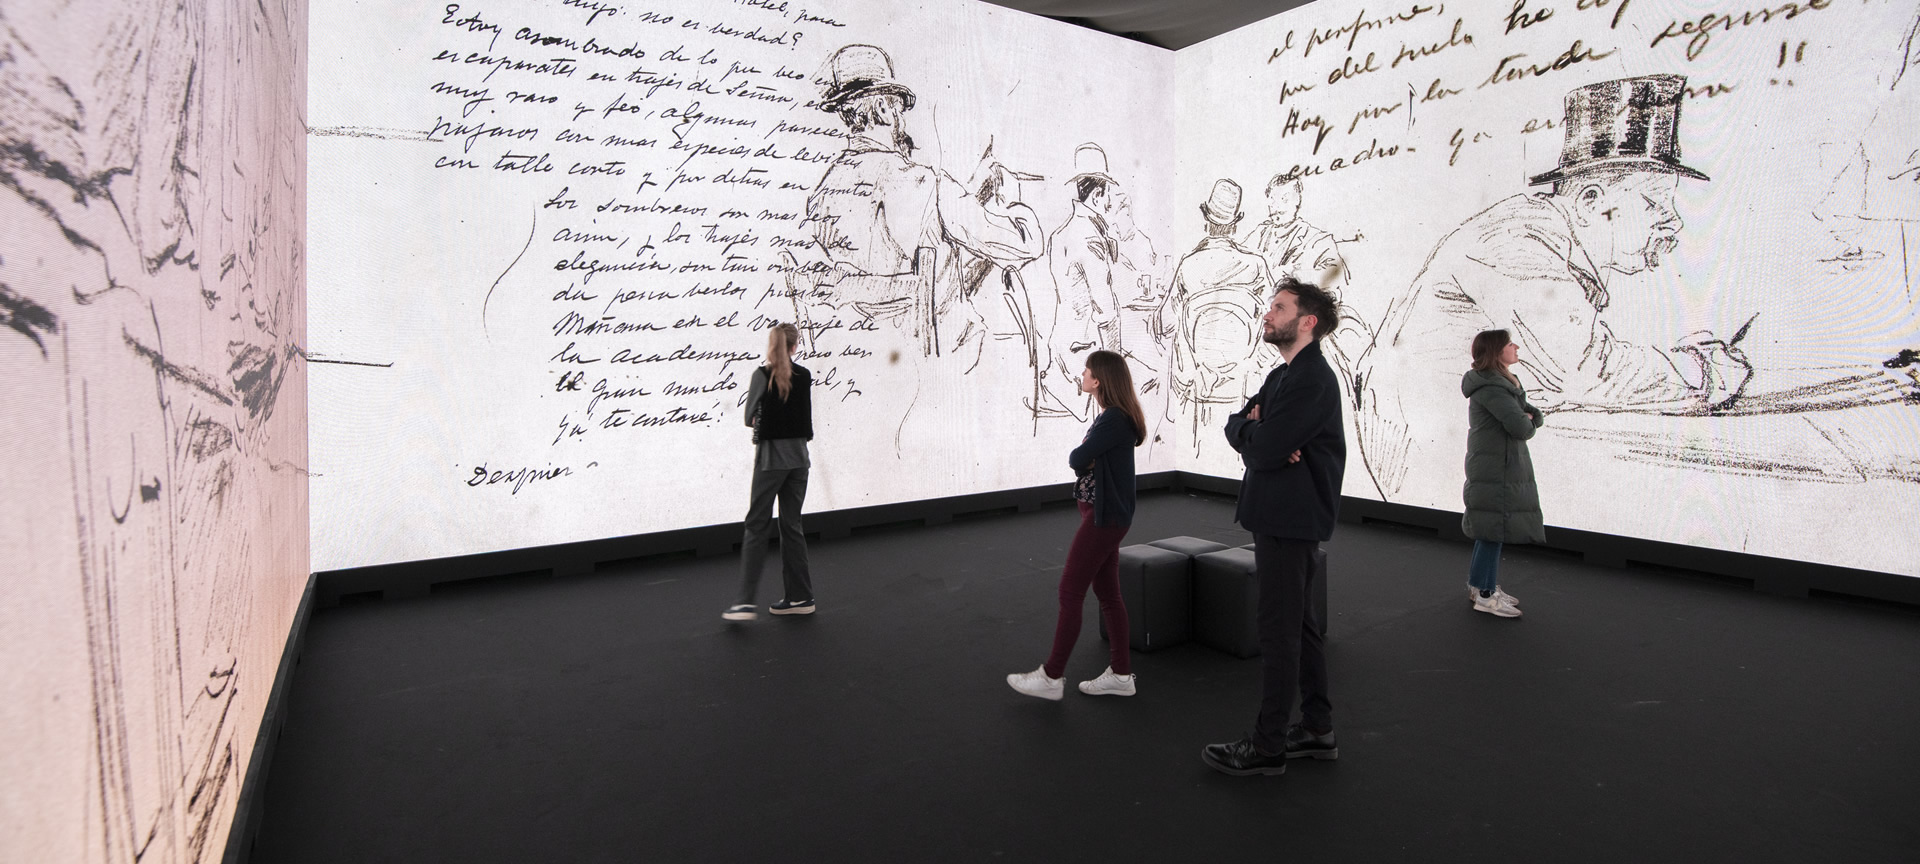 Hotel, para
no es verdad?
Estoy asombrado de lo que veo en
escaparates en trajes de Señora, es
muy raro y feo, algunas parecen
pajaros con unas especies de levitas
con talle corto y por detras en punta
Los sombreros son mas feos
aun, y los trajes mas de
elegancia, son tan
da pena verlos puestos.
Mañana en el varnizaje de
la academia, pero ver
el gran mundo y
ya te contaré!
Despues
el perfume,
que del suelo ha
Hoy por la tarde seguiré
cuadro. ya !!